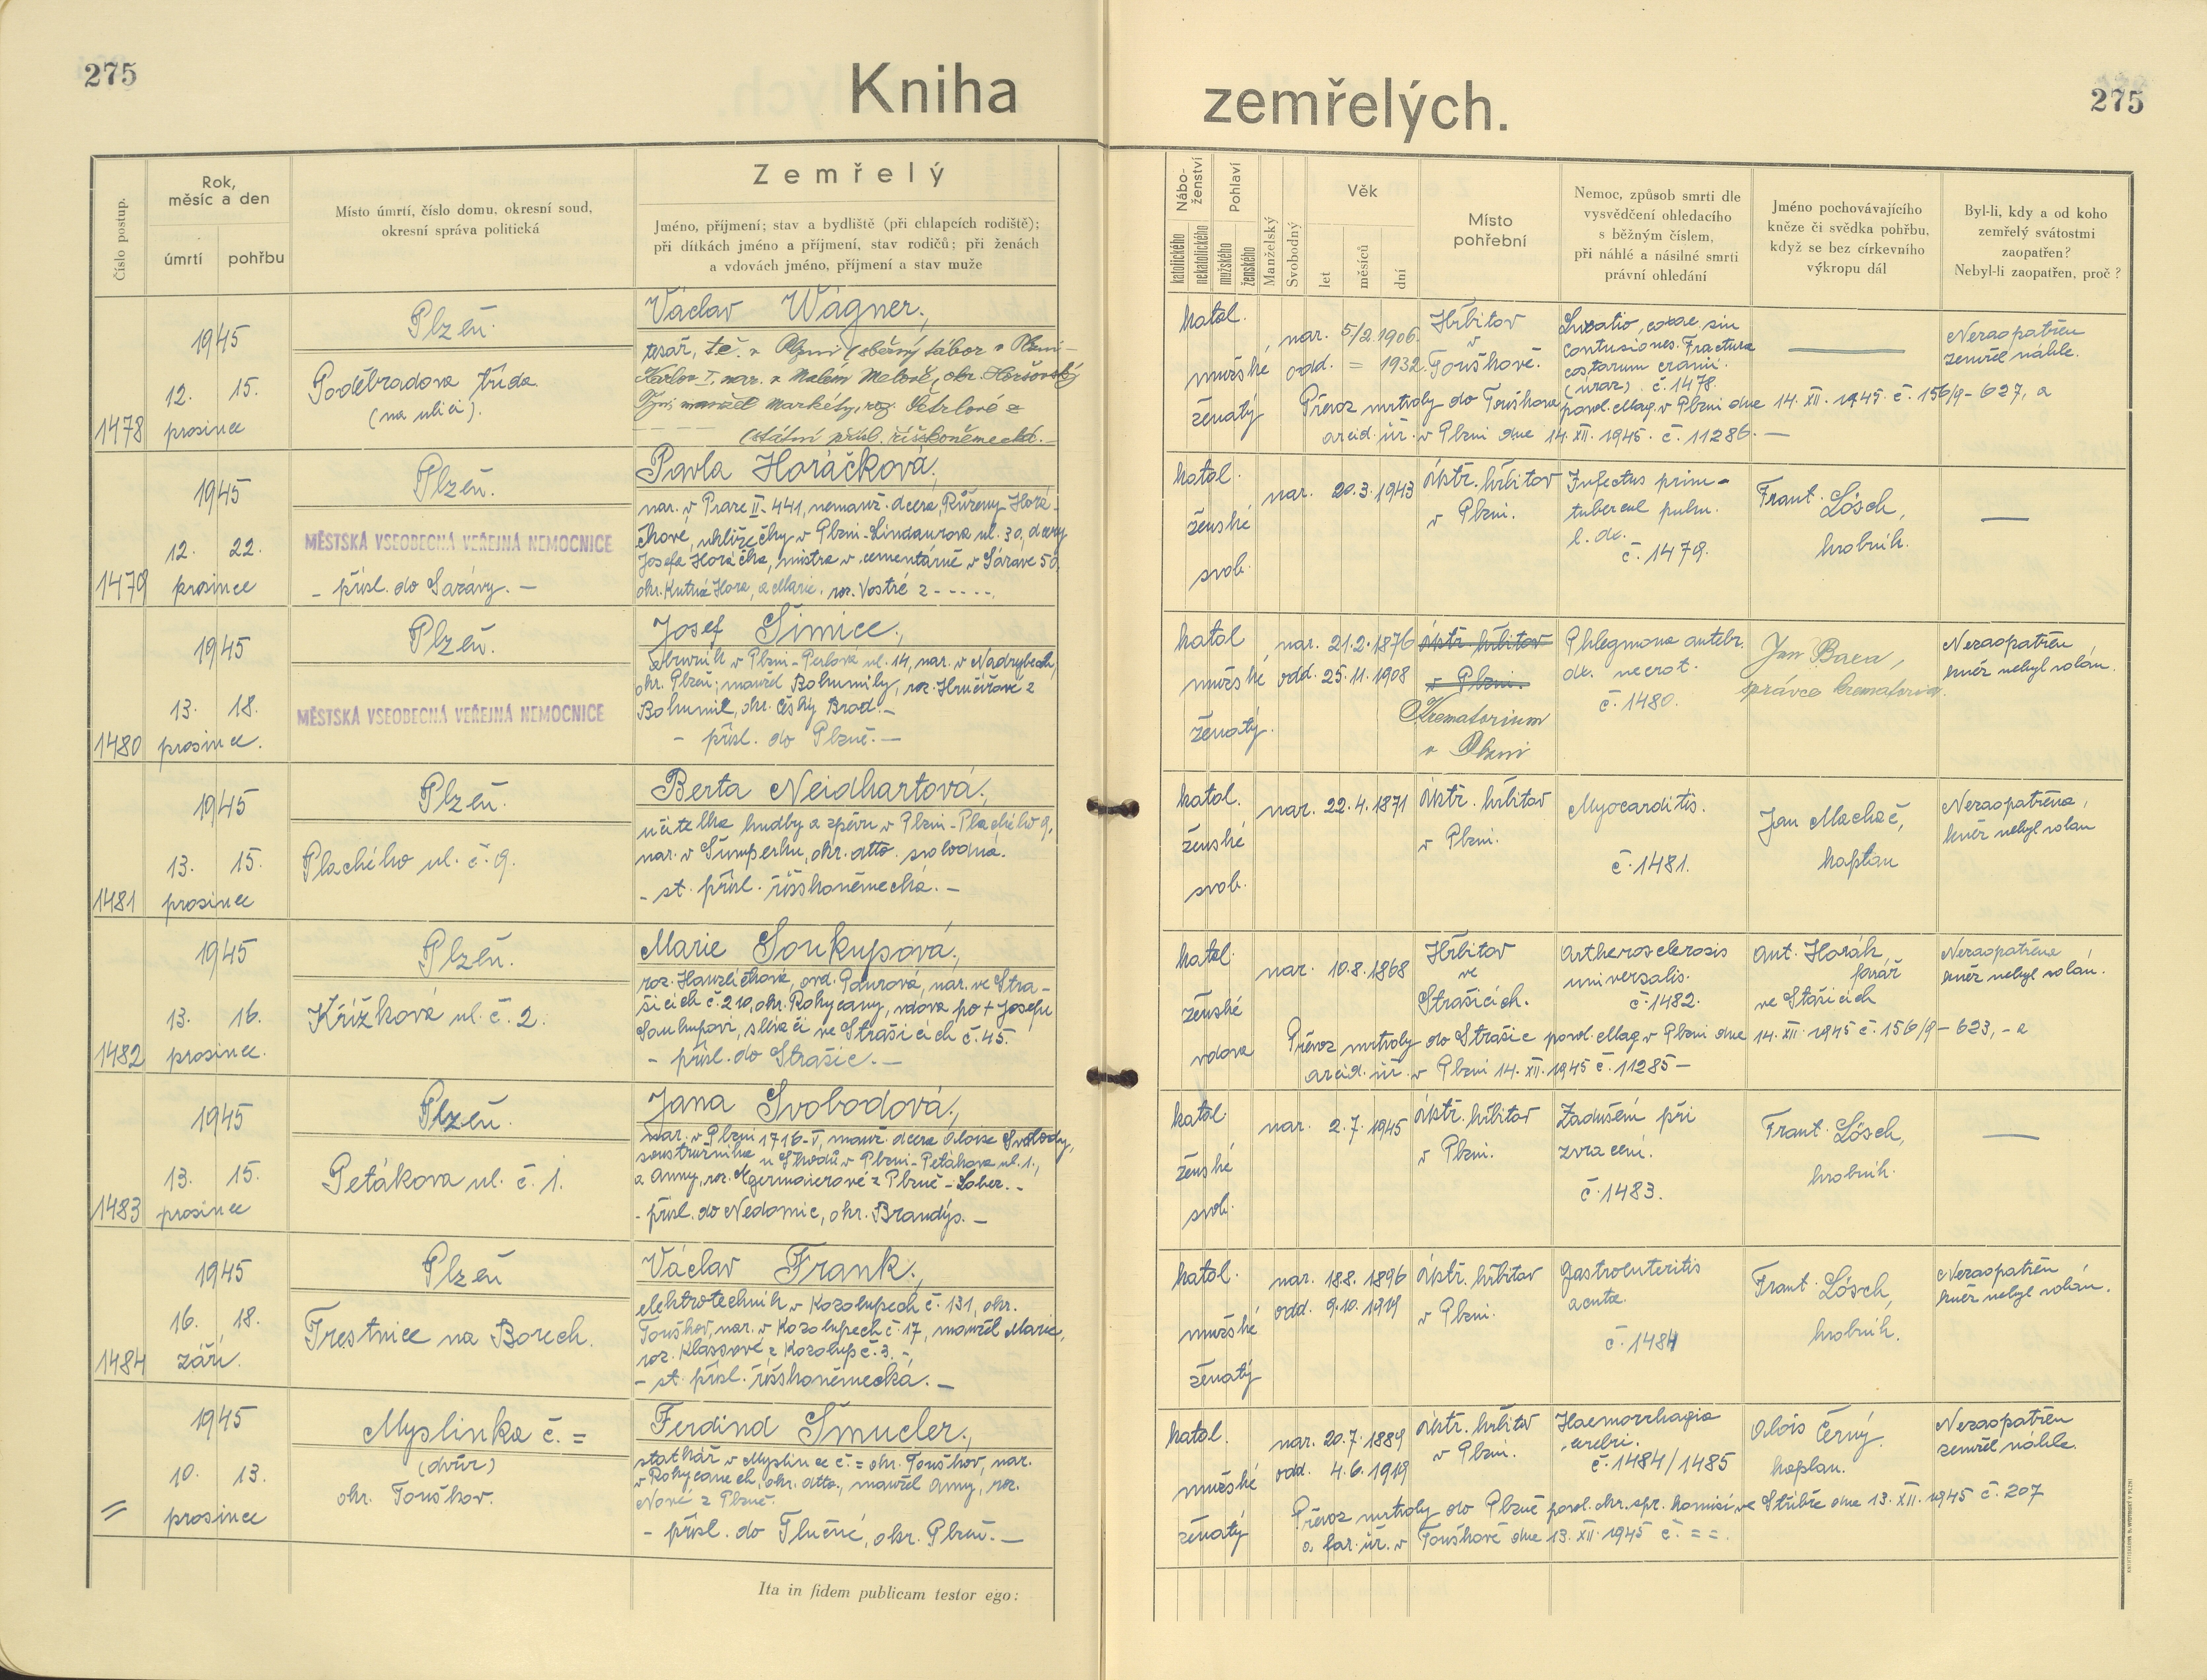 275
Kniha zemřelých.
275
Číslo postup.
Rok, měsíc a den
úmrtí
pohřbu
Místo úmrtí, číslo domu, okresní soud,
okresní správa politická
Zemřelý
Jméno, příjmení; stav a bydliště (při chlapcích rodiště);
při dítkách jméno a příjmení, stav rodičů; při ženách
a vdovách jméno, příjmení a stav muže
Nábo-
ženství
katolického
nekatolického
Pohlaví
mužského
ženského
Manželský
Svobodný
Věk
let
měsíců
dní
Místo
pohřební
Nemoc, způsob smrti dle
vysvědčení ohledacího
s běžným číslem,
při náhlé a násilné smrti
právní ohledání
Jméno pochovávajícího
kněze či svědka pohřbu,
když se bez církevního
výkropu dál
Byl-li, kdy a od koho
zemřelý svátostmi
zaopatřen?
Nebyl-li zaopatřen, proč?
1478
1945
12. 15.
prosince
Plzeň.
Poděbradova třída
(na ulici).
Václav Wágner,
tesař, tč. v Plzni (sběrný tábor v Plzni-
Karlov I., nar. v Malém Malově, okr. Horšovský
Týn, manžel Markéty, roz. Petrlové z
(státní přísl. říšskoněmecká.-
katol.
mužské
ženatý
nar. 5/2. 1906.
odd. = 1932.
Hřbitov
v
Touškově.
Luxatio coxae sin
contusiones. Fractura
costarum cranii.
(úraz) č. 1478.
Nezaopatřen
zemřel náhle.
Převoz mrtvoly do Touškova povol. Mag. v Plzni dne 14. XII. 1945. č. 156/9-627, a
arcid. úř. v Plzni dne 14. XII. 1945. č. 11286. —
1479
1945
12. 22.
prosince
Plzeň.
MĚSTSKÁ VŠEOBECNÁ VEŘEJNÁ NEMOCNICE
- přísl. do Sázavy. -
Pavla Horáčková,
nar. v Praze II-441, nemanž. dcera Růženy Horá-
čkové, uklízečky v Plzni-Lindaurova ul. 30, dcery
Josefa Horáčka, mistra v cementárně v Sázavě 50,
okr. Kutná Hora, a Marie, roz. Vostré z - - - - -.
katol.
ženské
svob.
nar. 20.3.1943
ústř. hřbitov
v Plzni.
Infectus prim-
tubercul pulm.
l. dx.
č. 1479.
Frant. Lösch,
hrobník.
—
1480
1945
13. 18.
prosince.
Plzeň.
MĚSTSKÁ VŠEOBECNÁ VEŘEJNÁ NEMOCNICE
Josef Šimice,
v Plzni-Perlová ul. 14, nar. v Nadrybech,
okr. Plzeň; manžel Bohumily, roz. Hručířové z
Bohumil, okr. Český Brod.-
- přísl. do Plzně. -
katol
mužské
ženatý.
nar. 21.2.1876
odd. 25.11.1908
ústř. hřbitov
v Plzni.
Krematorium
v Plzni
Phlegmona antebr.
dx. necrot.
č. 1480.
Jan Bara,
správce krematoria.
Nezaopatřen
kněz nebyl volán.
1481
1945
13. 15.
prosince
Plzeň.
Plachého ul. č. 9.
Berta Neidhartová,
učitelka hudby a zpěvu v Plzni-Plachého 9,
nar. v Šumperku, okr. dtto. svobodná.
- st. přísl. říšskoněmecká. -
katol.
ženské
svob.
nar. 22.4.1871
ústř. hřbitov
v Plzni.
Myocarditis.
č. 1481.
Jan Machač,
kaplan
Nezaopatřena,
kněz nebyl volán
1482
1945
13. 16.
prosince.
Plzeň.
Křížková ul. č. 2.
Marie Soukupová,
roz. Hanzlíčková, ovd. Pourová, nar. ve Stra-
šicích č. 210, okr. Rokycany, vdova po + Josefu
Soukupovi, sléváči ve Strašicích č. 45.
- přísl. do Strašic. -
katol.
ženské
vdova
nar. 10.8.1868
Hřbitov
ve
Strašicích.
Artherosclerosis
universalis.
č. 1482.
Ant. Horák
farář
ve Stašicích
Nezaopatřena
kněz nebyl volán.
Převoz mrtvoly do Strašic povol. Mag. v Plzni dne 14. XII. 1945 č. 156/9-623,- a
arcid. úř. v Plzni 14. XII. 1945 č. 11285 -
1483
1945
13. 15.
prosince
Plzeň.
Petákova ul. č. 1.
Jana Svobodová,
nar. v Plzni 1716-V, manž. dcera Aloise Svobody,
soustružníka u Škodů v Plzni-Petákova ul. 1.,
a Anny, roz. Agermaierové z Plzně-Lobez. -
- přísl. do Nedomic, okr. Brandýs. -
katol.
ženské
svob.
nar. 2.7.1945
ústř. hřbitov
v Plzni.
Zadušení při
zvracení.
č. 1483.
Frant. Lösch,
hrobník.
—
1484
1945
16. 18.
září.
Plzeň
Trestnice na Borech.
Václav Frank,
elektrotechnik v Kozolupech č. 131, okr.
Touškov, nar. v Kozolupech č. 17, manžel Marie,
roz. Klassové z Kozolup č. 3. -
- st. přísl. říšskoněmecká. -
katol.
mužské
ženatý
nar. 18.8. 1896
odd. 9.10. 1919
ústř. hřbitov
v Plzni.
Gastroenteritis
acuta.
č. 1484
Frant. Lösch,
hrobník.
Nezaopatřen
kněz nebyl volán.
=
1945
10. 13.
prosince
Myslinka č. =
(dvůr)
okr. Touškov.
Ferdind Šmucler,
statkář v Myslince č. = okr. Touškov, nar.
v Rokycanech, okr. dtto., manžel Anny, roz.
Nové z Plzně.
- přísl. do Tlučné, okr. Plzeň. -
katol.
mužské
ženatý
nar. 20.7.1889
odd. 4.6.1919
ústř. hřbitov
v Plzni.
Haemorrhagia
cerebri.
č. 1484/1485
Alois Černý.
kaplan.
Nezaopatřen
zemřel náhle.
Převoz mrtvoly do Plzně povol. okr. spr. komisí ve Stříbře dne 13. XII. 1945 č. 207
a far. úř. v Touškově dne 13. XII. 1945 č. = =.
Ita in fidem publicam testor ego: